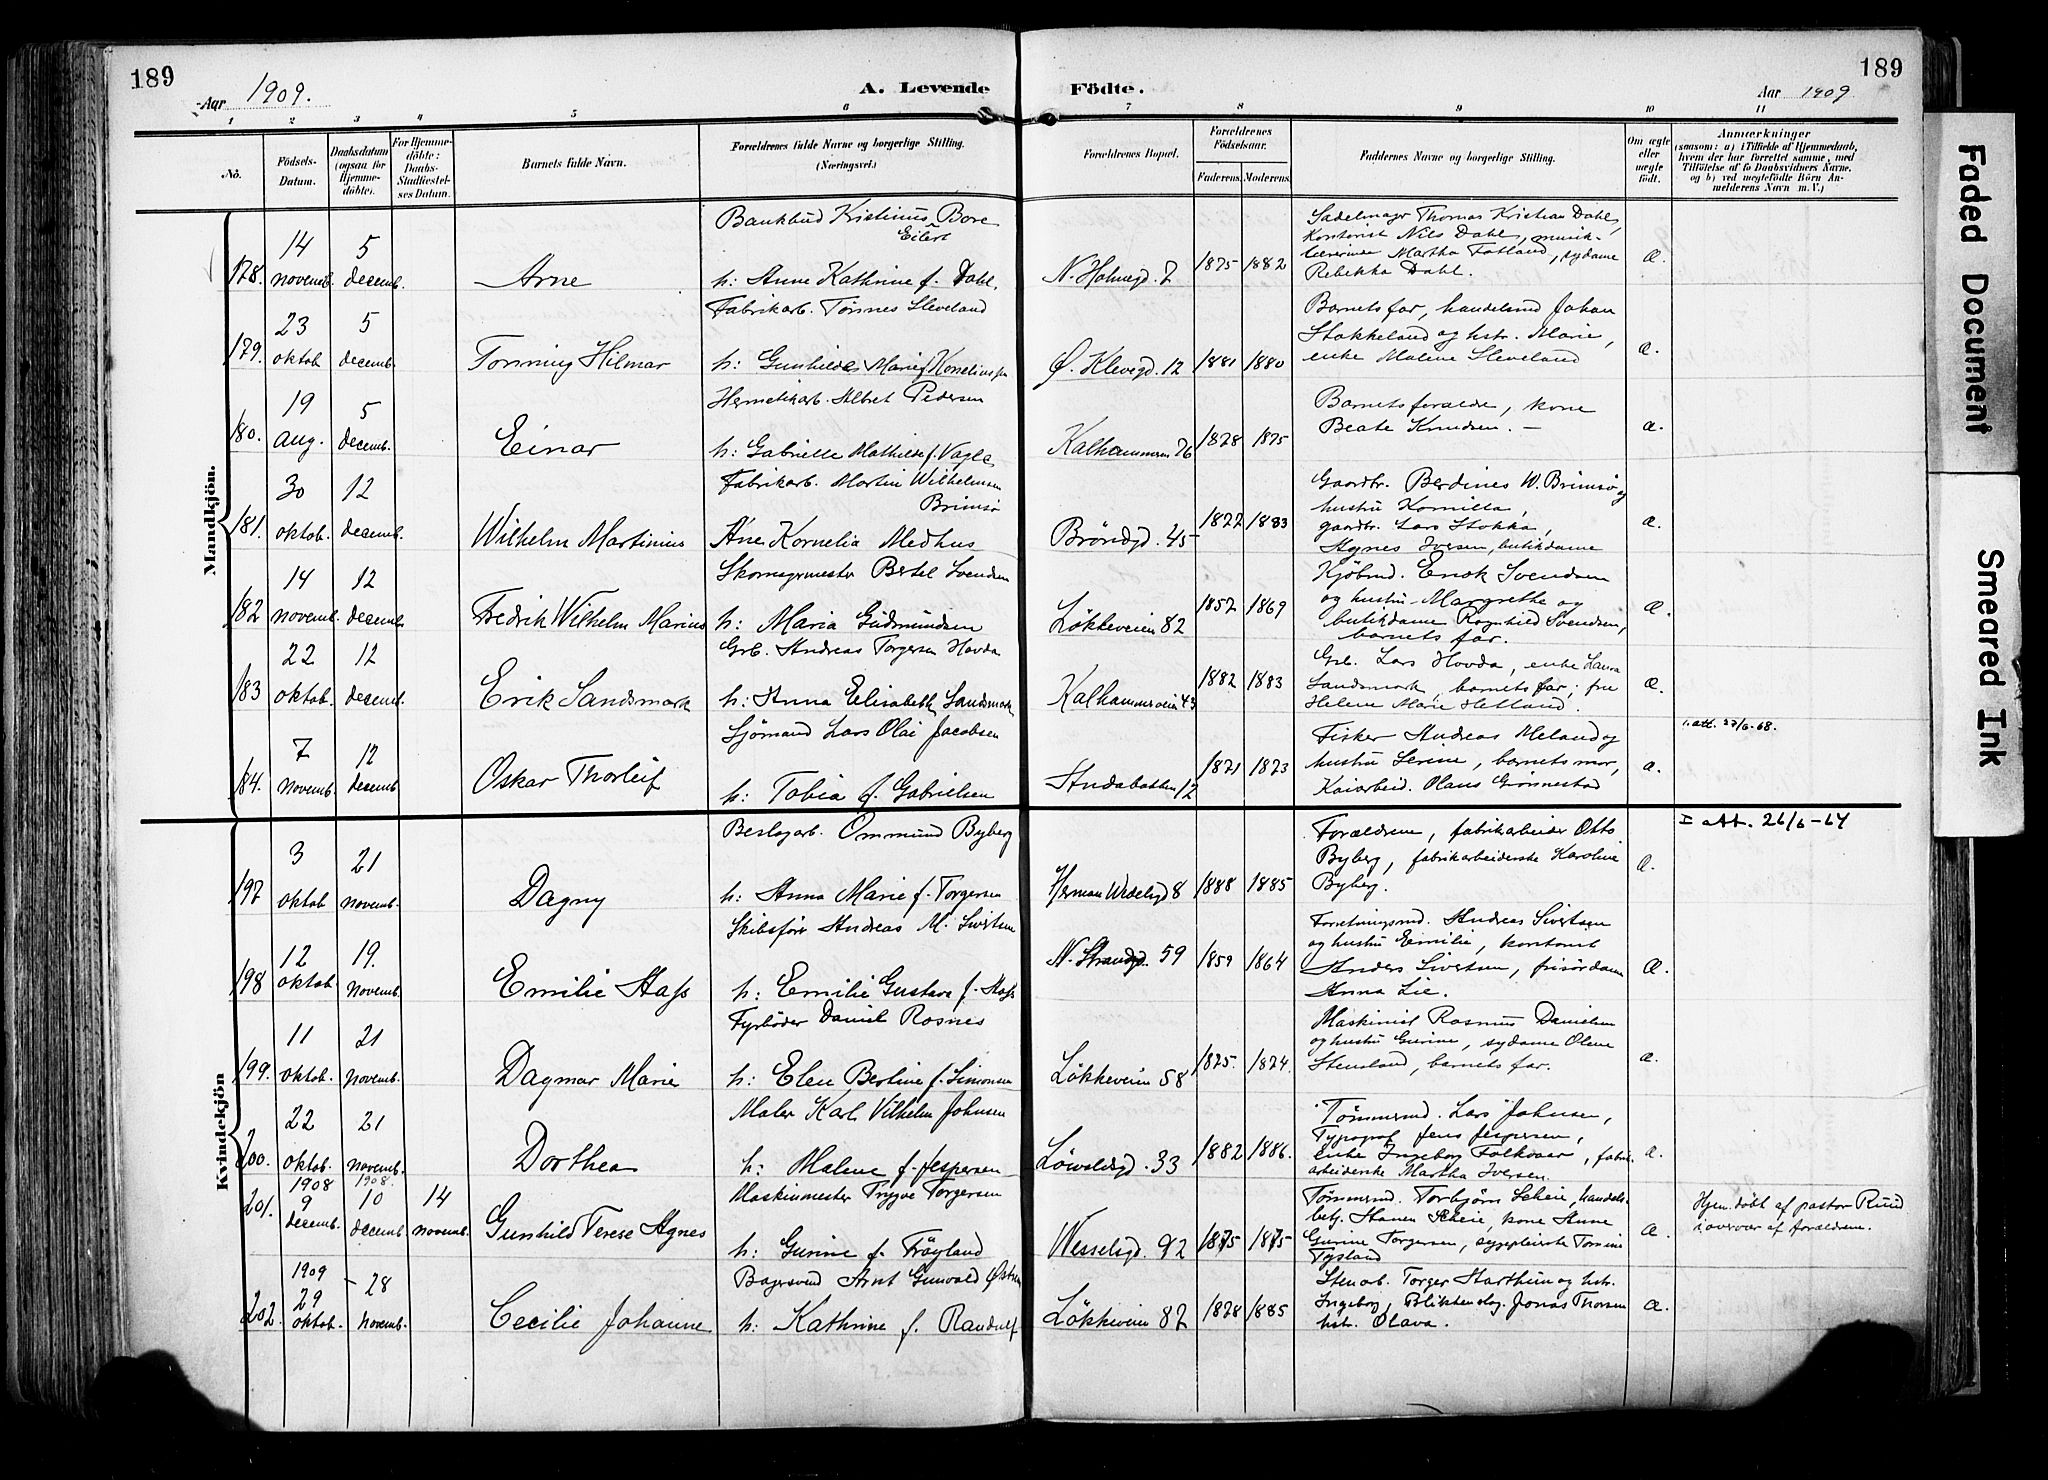 189
Aar 1909.
A. Levende
Födte.
Aar 1909
189
1 2 3 4 5 6 7 8 9 10 11
No.
Födsels-Datum.
Daabsdatum (ogsaa for Hjemmedöbte).
For Hjemmedöbte: Daabs-Stadfæstelses Datum.
Barnets fulde Navn.
Forældrenes fulde Navne og borgerlige Stilling. (Næringsvei.)
Forældrenes Bopæl.
Forældrenes Födselsaar.
Faderens. Moderens.
Faddernes Navne og borgerlige Stilling.
Om ægte eller uægte födt.
Anmærkninger
(saasom: a) i Tilfælde af Hjemmedaab, hvem der har forrettet samme, med Tilföielse af to Daabsvidners Navne, og b) ved uægtefödte Börn Anmelderens Navn m. V.)
Mandkjön.
178. 14 novemb. 5 decemb. Arne
Bankbud Kristinus Eilert Bore
h: Anne Kathrine f. Dahl.
N. Holmegd. 7 1875 1882
Sadelmager Thomas Kristian Dahl,
kontorist Nils Dahl, musik-
lærerinde Martha Fatland, sydame
Rebekka Dahl.
Æ.
179. 23 oktob. 5 decemb. Tønning Hilmar
Fabrikarb. Tønnes Sleveland
h: Gunhilde Marie f. Korneliussen
Ø. Klevegd. 12 1881 1880
Barnets far, handelsmd Johan
Stokkeland og hstr. Marie,
enke Malene Sleveland
Æ.
180. 19 aug. 5 decemb. Einar
Hermetikarb. Albret Pedersen
h: Gabrielle Mathilde f. Vagle
Kalhammeren 76 1878 1875
Barnets forældre, kone
Beate Knudsen. —
Æ.
181. 30 oktob. 12 decemb. Wilhelm Martinius
Fabrikarb. Martin Wilhelmsen
Brimsø
Ane Kornelia Medhus
Brøndgd. 45 1877 1883
Gaardbr. Berdines W. Brimsø og
hustru Kornilia,
gaardbr. Lars Stokka,
Agnes Iversen, butikdame
Æ.
182 14 novemb. 12 decemb. Fredrik Wilhelm Marius
Skomagermester Bertel Svendsen
h: Maria Gudmundsen
Løkkeveien 82 1857 1869
Kjøbmd. Enok Svendsen
og hustru Margrethe og
butikdame Ragnhild Svendsen,
barnets far.
Æ.
183 22 oktob. 12 decemb. Erik Sandsmark
Grb. Andreas Torgersen Hovda
h: Anna Elisabeth Sandsmark
Kalhammerveien 43 1882 1883
Grb. Lars Hovda, enke Laura
Sandsmark, barnets far; fru
Helene Marie Helland.
Æ.
184. 7 novemb. 12 decemb. Oskar Thorleif
Sjømand Lars Olai Jacobsen
h: Tobia f. Gabrielsen
Strandabakken 12 1871 1873
Fisker Andreas Meland og
hustru Serine, barnets mor,
Kaiarbeid. Olaus Grønnestad
Æ.
1. att. 27/6-68.
Kvindekjön
197 3 oktob. 21 novemb. Dagny
Beslagarb. Ommund Byberg
h: Anna Marie f. Torgersen
Herman Wedelsgd 8 1888 1885
Forældrene, fabrikarbeider Otto
Byberg, fabrikarbeiderske Karoline
Byberg.
Æ.
I att. 26/6-64
198 12 oktob. 19. novemb. Emilie Hass
Skibsfører Andreas M. Sivertsen
h: Emilie Gustava f. Hass
N. Strandgd. 59 1859 1864
Forretningsmd. Andreas Sivertsen
og hustru Emilie, kontorist
Anders Sivertsen, frisørdame
Anna Lie.
Æ.
199. 11 oktob. 21 novemb. Dagmar Marie
Fyrbøder Daniel Rosnes
h: Elen Bertine f. Simonsen
Løkkeveien 58 1875. 1874.
Maskinist Rasmus Danielsen
og hustru Gurine, sydame Olene
Stensland, barnets far.
Æ.
200. 22 oktob. 21 novemb. Dorthea
Maler Karl Vilhelm Johnsen
h: Malene f. Jespersen
Løwoldsgd. 33 1882 1886.
Tømmermd. Lars Johnsen,
Typograf Jens Jespersen,
enke Ingeborg Falkvaar, fabrik-
arbeiderske Martha Iversen.
Æ.
201. 1908 9 decemb. 1908. 10 decemb 14 novemb. Gunhild Terese Agnes
Maskinmester Trygve Torgersen
h: Gurine f. Frøyland
Wesselsgd. 92 1875 1875
Tømmermd. Torbjørn Scheie, handels-
betj. Hanen Scheie, kone Anne
Gurine Torgersen, syerske Tomine
Tysland
Æ.
Hjem. døbt af pastor Ruud
i overvær af forældrene.
202. 1909 29 oktob. — 28 novemb. Cecilie Johanne
Bagersvend Arnt Gunvald
h: Kathrine f. Randulf
Løkkeveien 87 1878 1885
Stenarb. Torger Harthun og hstr.
Ingeborg, Blikkenslag. Jonas Thorsen
hstr. Olava.
Æ.
Faded Document
Smeared Ink